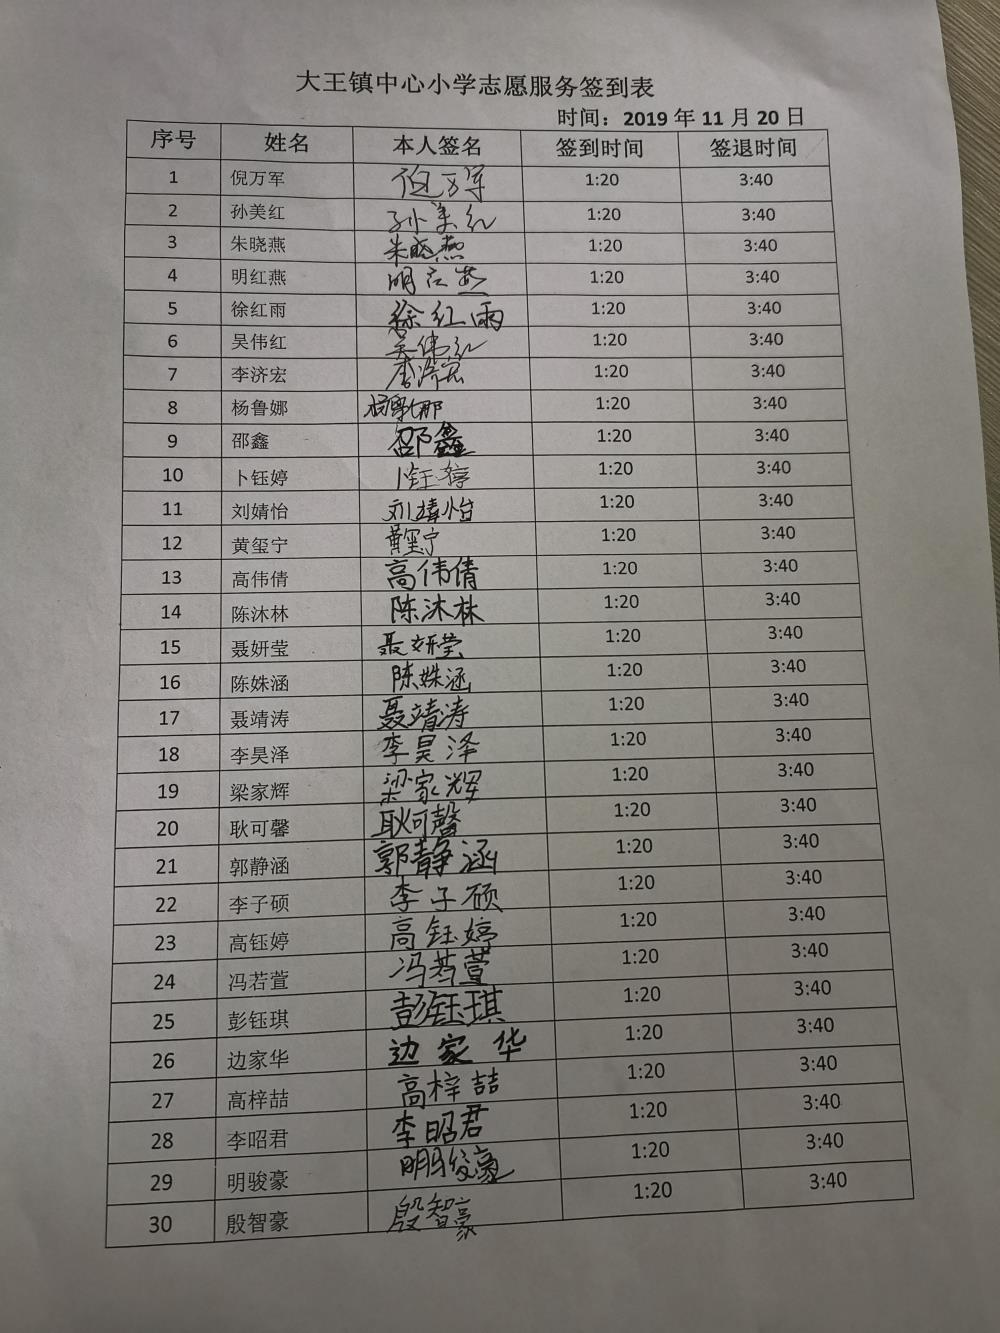 大王镇中心小学志愿服务签到表
时间：2019 年 11 月 20 日
序号 姓名 本人签名 签到时间 签退时间
1 倪万军 倪万军 1:20 3:40
2 孙美红 孙美红 1:20 3:40
3 朱晓燕 朱晓燕 1:20 3:40
4 明红燕 明红燕 1:20 3:40
5 徐红雨 徐红雨 1:20 3:40
6 吴伟红 吴伟红 1:20 3:40
7 李济宏 李济宏 1:20 3:40
8 杨鲁娜 杨鲁娜 1:20 3:40
9 邵鑫 邵鑫 1:20 3:40
10 卜钰婷 卜钰婷 1:20 3:40
11 刘婧怡 刘婧怡 1:20 3:40
12 黄玺宁 黄玺宁 1:20 3:40
13 高伟倩 高伟倩 1:20 3:40
14 陈沐林 陈沐林 1:20 3:40
15 聂妍莹 聂妍莹 1:20 3:40
16 陈姝涵 陈姝涵 1:20 3:40
17 聂靖涛 聂靖涛 1:20 3:40
18 李昊泽 李昊泽 1:20 3:40
19 梁家辉 梁家辉 1:20 3:40
20 耿可馨 耿可馨 1:20 3:40
21 郭静涵 郭静涵 1:20 3:40
22 李子硕 李子硕 1:20 3:40
23 高钰婷 高钰婷 1:20 3:40
24 冯若萱 冯若萱 1:20 3:40
25 彭钰琪 彭钰琪 1:20 3:40
26 边家华 边家华 1:20 3:40
27 高梓喆 高梓喆 1:20 3:40
28 李昭君 李昭君 1:20 3:40
29 明骏豪 明骏豪 1:20 3:40
30 殷智豪 殷智豪 1:20 3:40